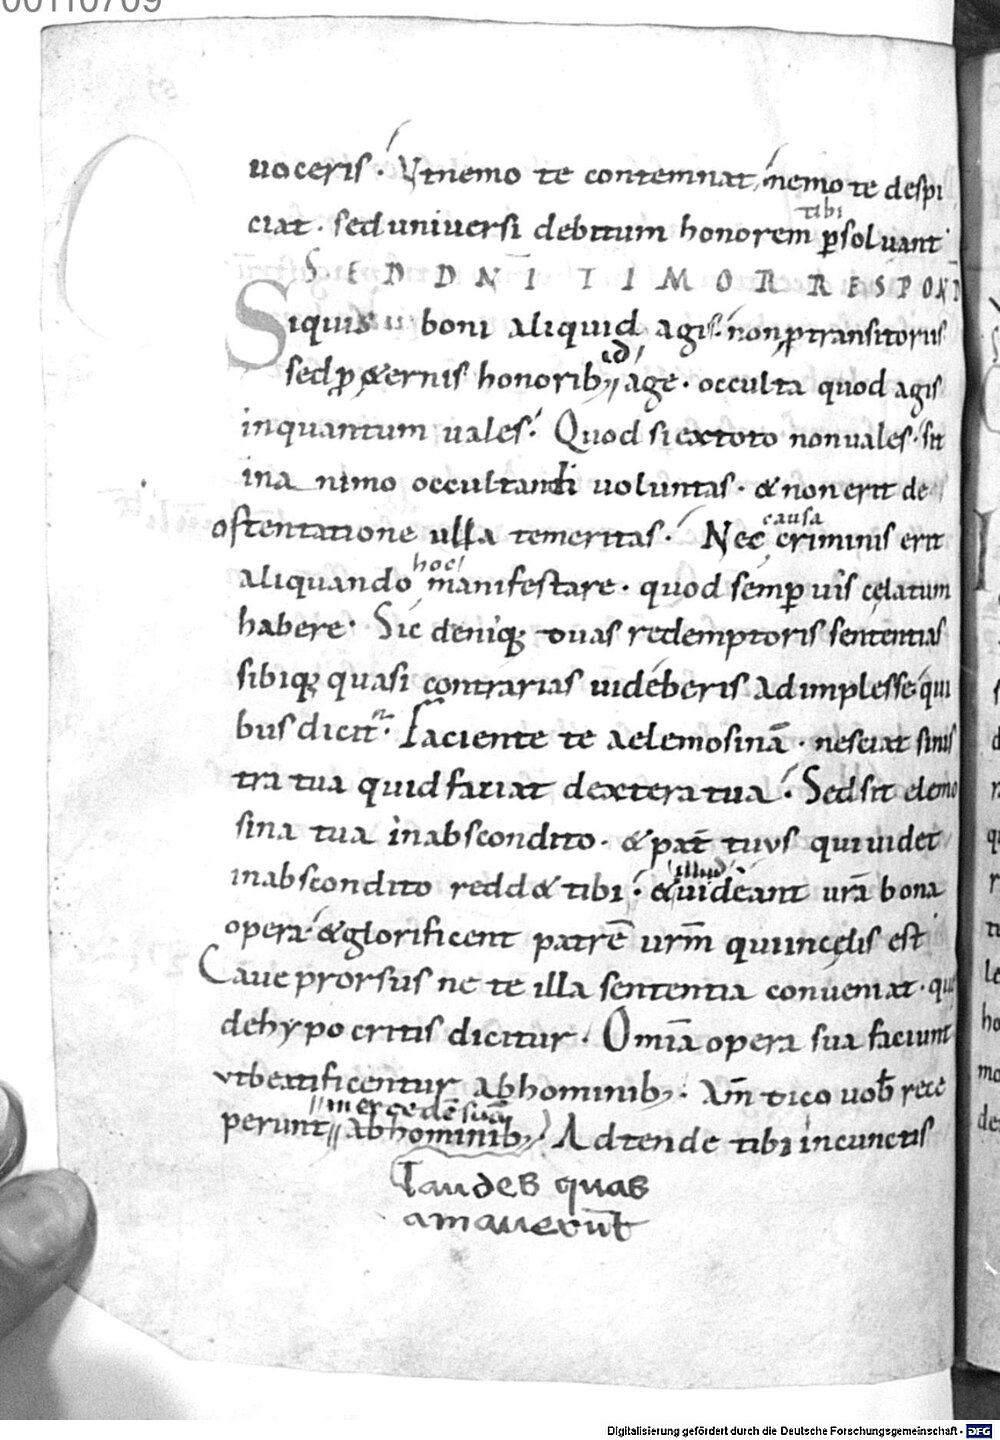 00110709
uoceris. Vt nemo te contemnat, nemo te despi
ciat. sed uniuersi debitum honorem tibi p̲soluant
SED DN̅I TIMOR RESPOND
Siquis boni aliquid agis. non p̲transitoriis
sed p̲ &ernis honorib; id age. occulta quod agis
inquantum uales. Quod si extoto nonuales. sit
inanimo occultandi uoluntas. & non erit de
ostentatione ulla temeritas. Nec causa criminis erit
aliquando hoc manifestare. quod semp̲ uis cęlatum
habere. Sic deniq; duas redemptoris sententias
sibiq; quasi contrarias uideberis adimplesse qui
bus dicit. Faciente te aelemosinā. nesciat sinis
tra tua quid faciat dextera tua. Sed sit elemo
sina tua inabscondito. & pat̄ tuus qui uidet
inabscondito redd& tibi. & illud uideant ur̄a bona
opera &glorificent patrē ur̄m qui incęlis est
Caue prorsus ne te illa sententia conueniat. que
dehypocritis dicitur. Omīa opera sua faciunt
vtbeatificentur abhominib;. Am̄ dico uob̄ rece
perunt mercedē suā abhominib;. Adtende tibi incunctis
laudes quas
amauerūt
Digitalisierung gefördert durch die Deutsche Forschungsgemeinschaft - DFG